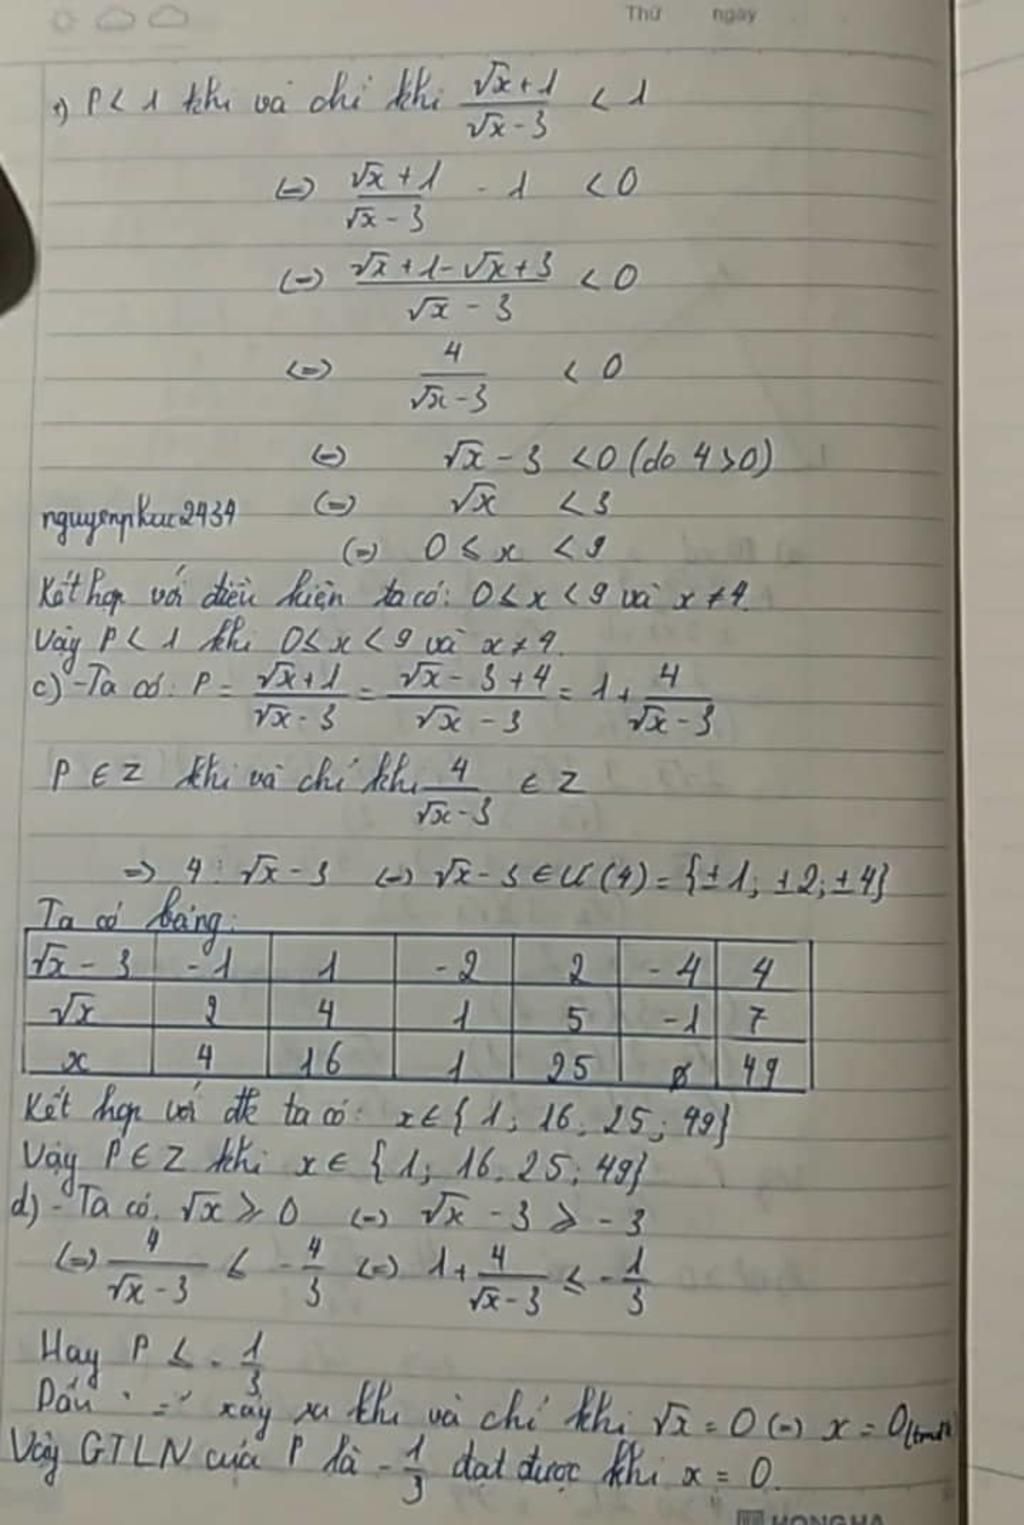 Thứ ngày
1) P < 1 khi và chỉ khi (√x + 1)/(√x - 3) < 1
(=) (√x + 1)/(√x - 3) - 1 < 0
(=) (√x + 1 - √x + 3)/(√x - 3) < 0
(=) 4/(√x - 3) < 0
(=) √x - 3 < 0 (do 4 > 0)
(=) √x < 3
nguyenphuc2434
(=) 0 ≤ x < 9
Kết hợp với điều kiện ta có: 0 ≤ x < 9 và x ≠ 4.
Vậy P < 1 khi 0 ≤ x < 9 và x ≠ 4.
c) - Ta có: P = (√x + 1)/(√x - 3) = (√x - 3 + 4)/(√x - 3) = 1 + 4/(√x - 3)
P ∈ Z khi và chỉ khi 4/(√x - 3) ∈ Z
=> 4 ⋮ √x - 3 (=) √x - 3 ∈ Ư(4) = {±1; ±2; ±4}
Ta có bảng:
√x - 3 -1 1 -2 2 -4 4
√x 2 4 1 5 -1 7
x 4 16 1 25 ∅ 49
Kết hợp với đk ta có: x ∈ {1; 16; 25; 49}
Vậy P ∈ Z khi x ∈ {1; 16; 25; 49}
d) - Ta có. √x ≥ 0 (=) √x - 3 ≥ -3
(=) 4/(√x - 3) ≤ -4/3 (=) 1 + 4/(√x - 3) ≤ -1/3
Hay P ≤ -1/3
Dấu "=" xảy ra khi và chỉ khi √x = 0 (=) x = 0 (tmđk)
Vậy GTLN của P là -1/3 đạt được khi x = 0.
HONG HA